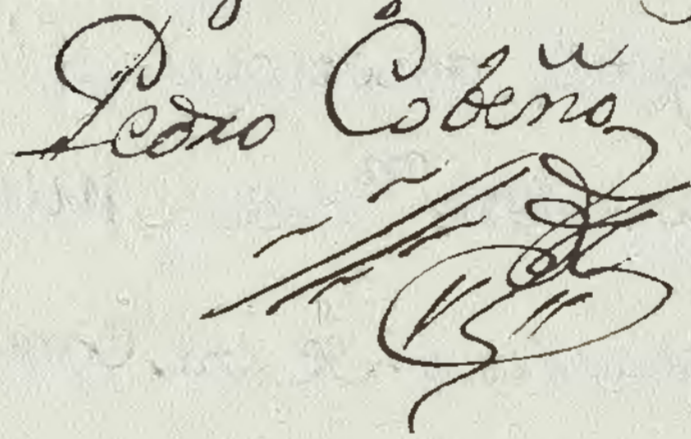 Pedro Cobeña